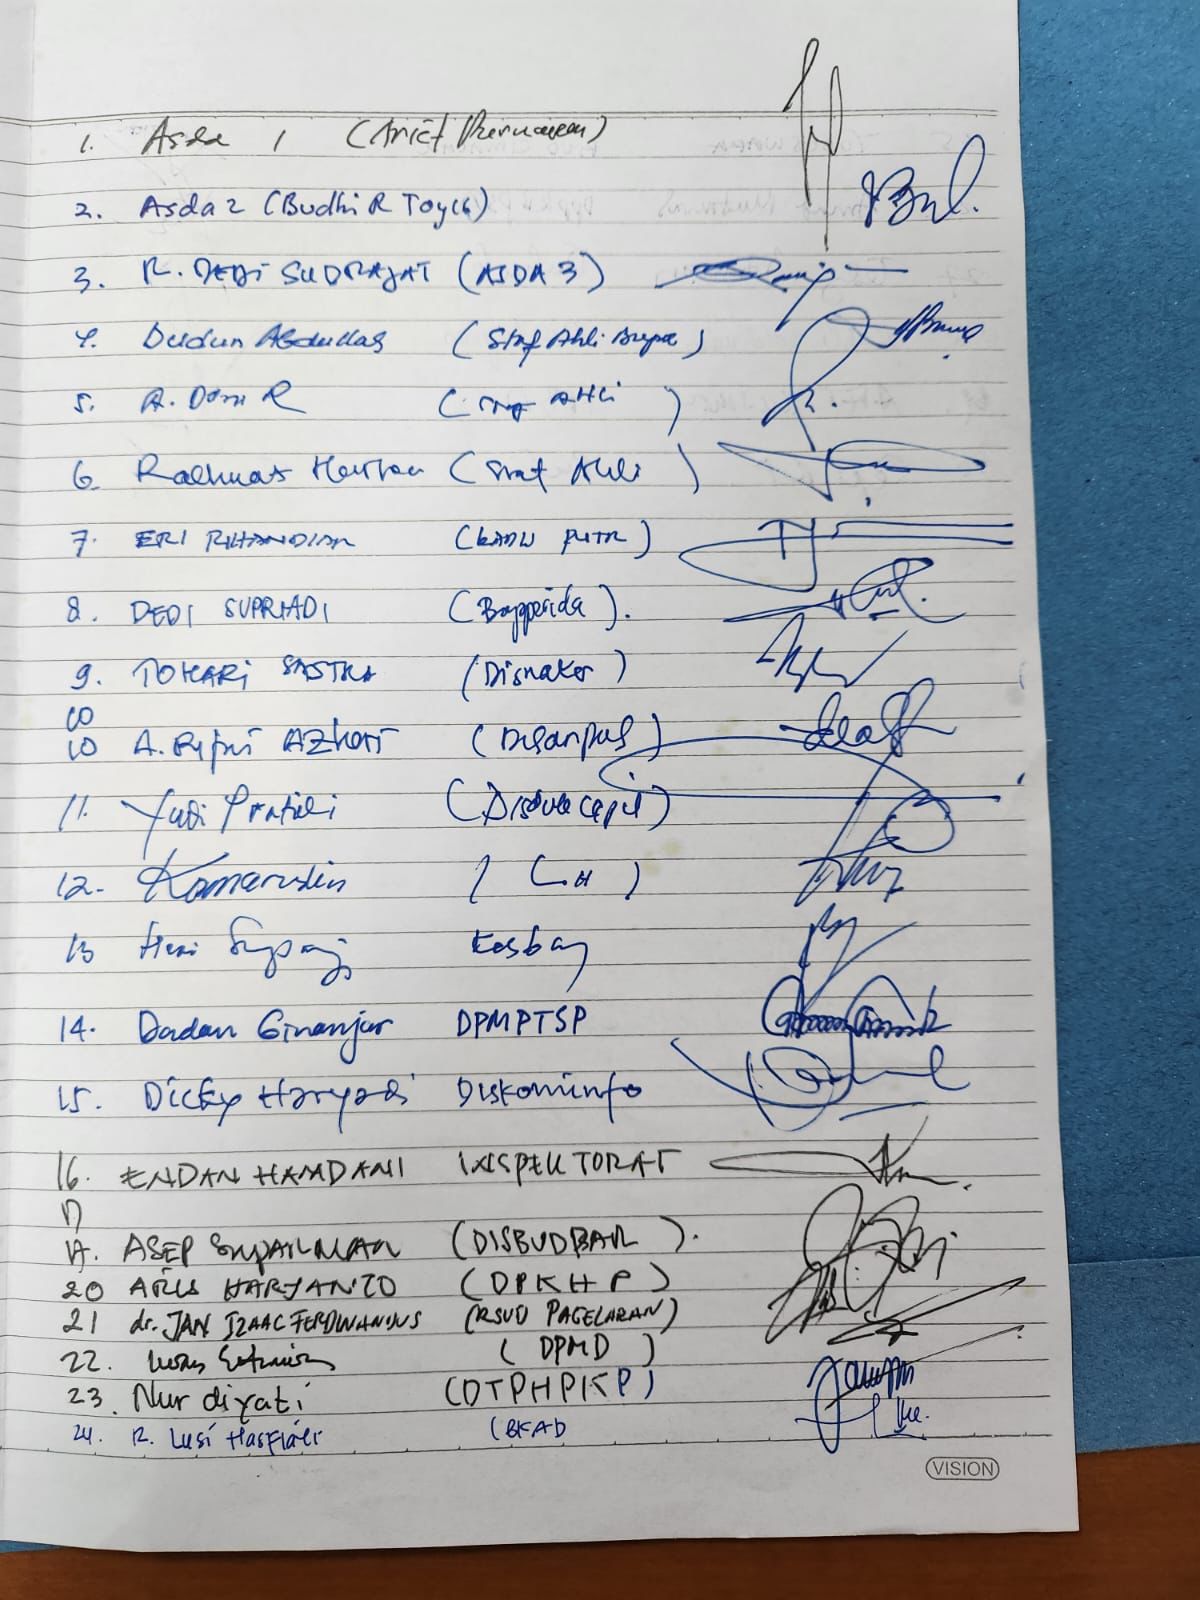 1. Asda 1 (Arief
2. Asda 2 (Budhi R Toyib)
3. R. DEDI SUDRAJAT (ASDA 3)
4. Dudun Abdullah (Staf Ahli
5. A. Doni R (Staf AHLi)
6. Rachmat Hartono (Staf Ahli)
7. ERI RIHANDIAR (KADIS PUTR)
8. DEDI SUPRIADI (Bapperida).
9. TOHARI SASTRA (Disnaker)
10
10 A. Rifqi AZhari (Disarpus)
11. Yudi Pratidi (Disdukcapil)
12. Kamarudin (LH)
13 Heri Kesbang
14. Dadan Ginanjar DPMPTSP
15. Dicky Haryadi Diskominfo
16. ENDAN HAMDANI INSPEKTORAT
17
17. ASEP SUPARMAN (DISBUDPAR).
20 ARIS HARYANTO (DPKHP)
21 dr. JAN IZAAC FERDINANDUS (RSUD PAGELARAN)
22. (DPMD)
23. Nur diyati (DTPHPKP)
24. R. Lusi (BKAD
VISION